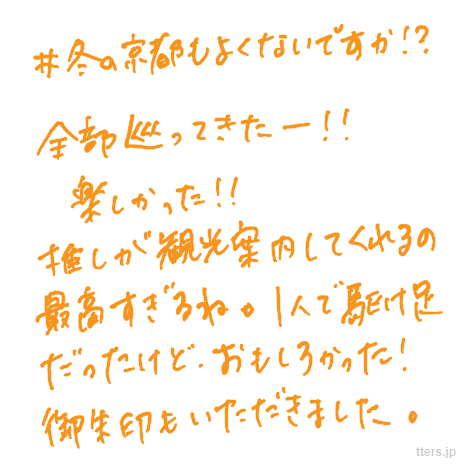 #冬の京都もよくないですか!?
全部巡ってきたー!!
楽しかった!!
推しが観光案内してくれるの
最高すぎるね。1人で駆け足
だったけど、おもしろかった!
御朱印もいただきました。
tters.jp